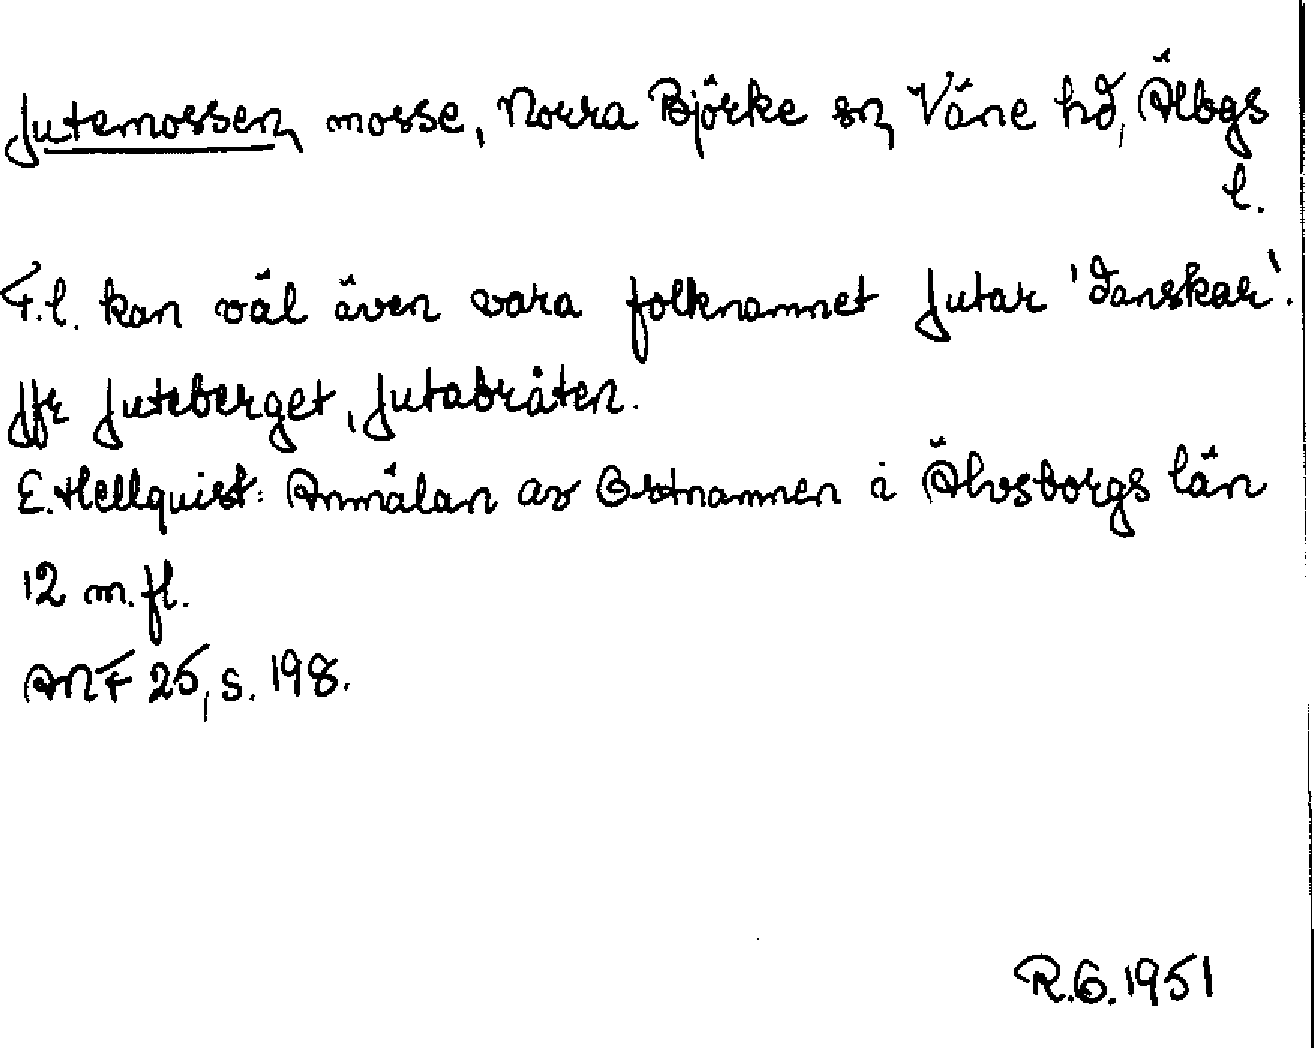 Jutemossen, mosse, Norra Björke sn, Väne hd, Älbgs
l.
F.l. kan väl även vara folknamnet Jutar 'danskar'.
Jfr Juteberget, Jutabråten.
E. Hellquist: Anmälan av Ortnamnen i Älvsborgs län
12 m.fl.
ANF 25, s. 198.
R.G. 1951